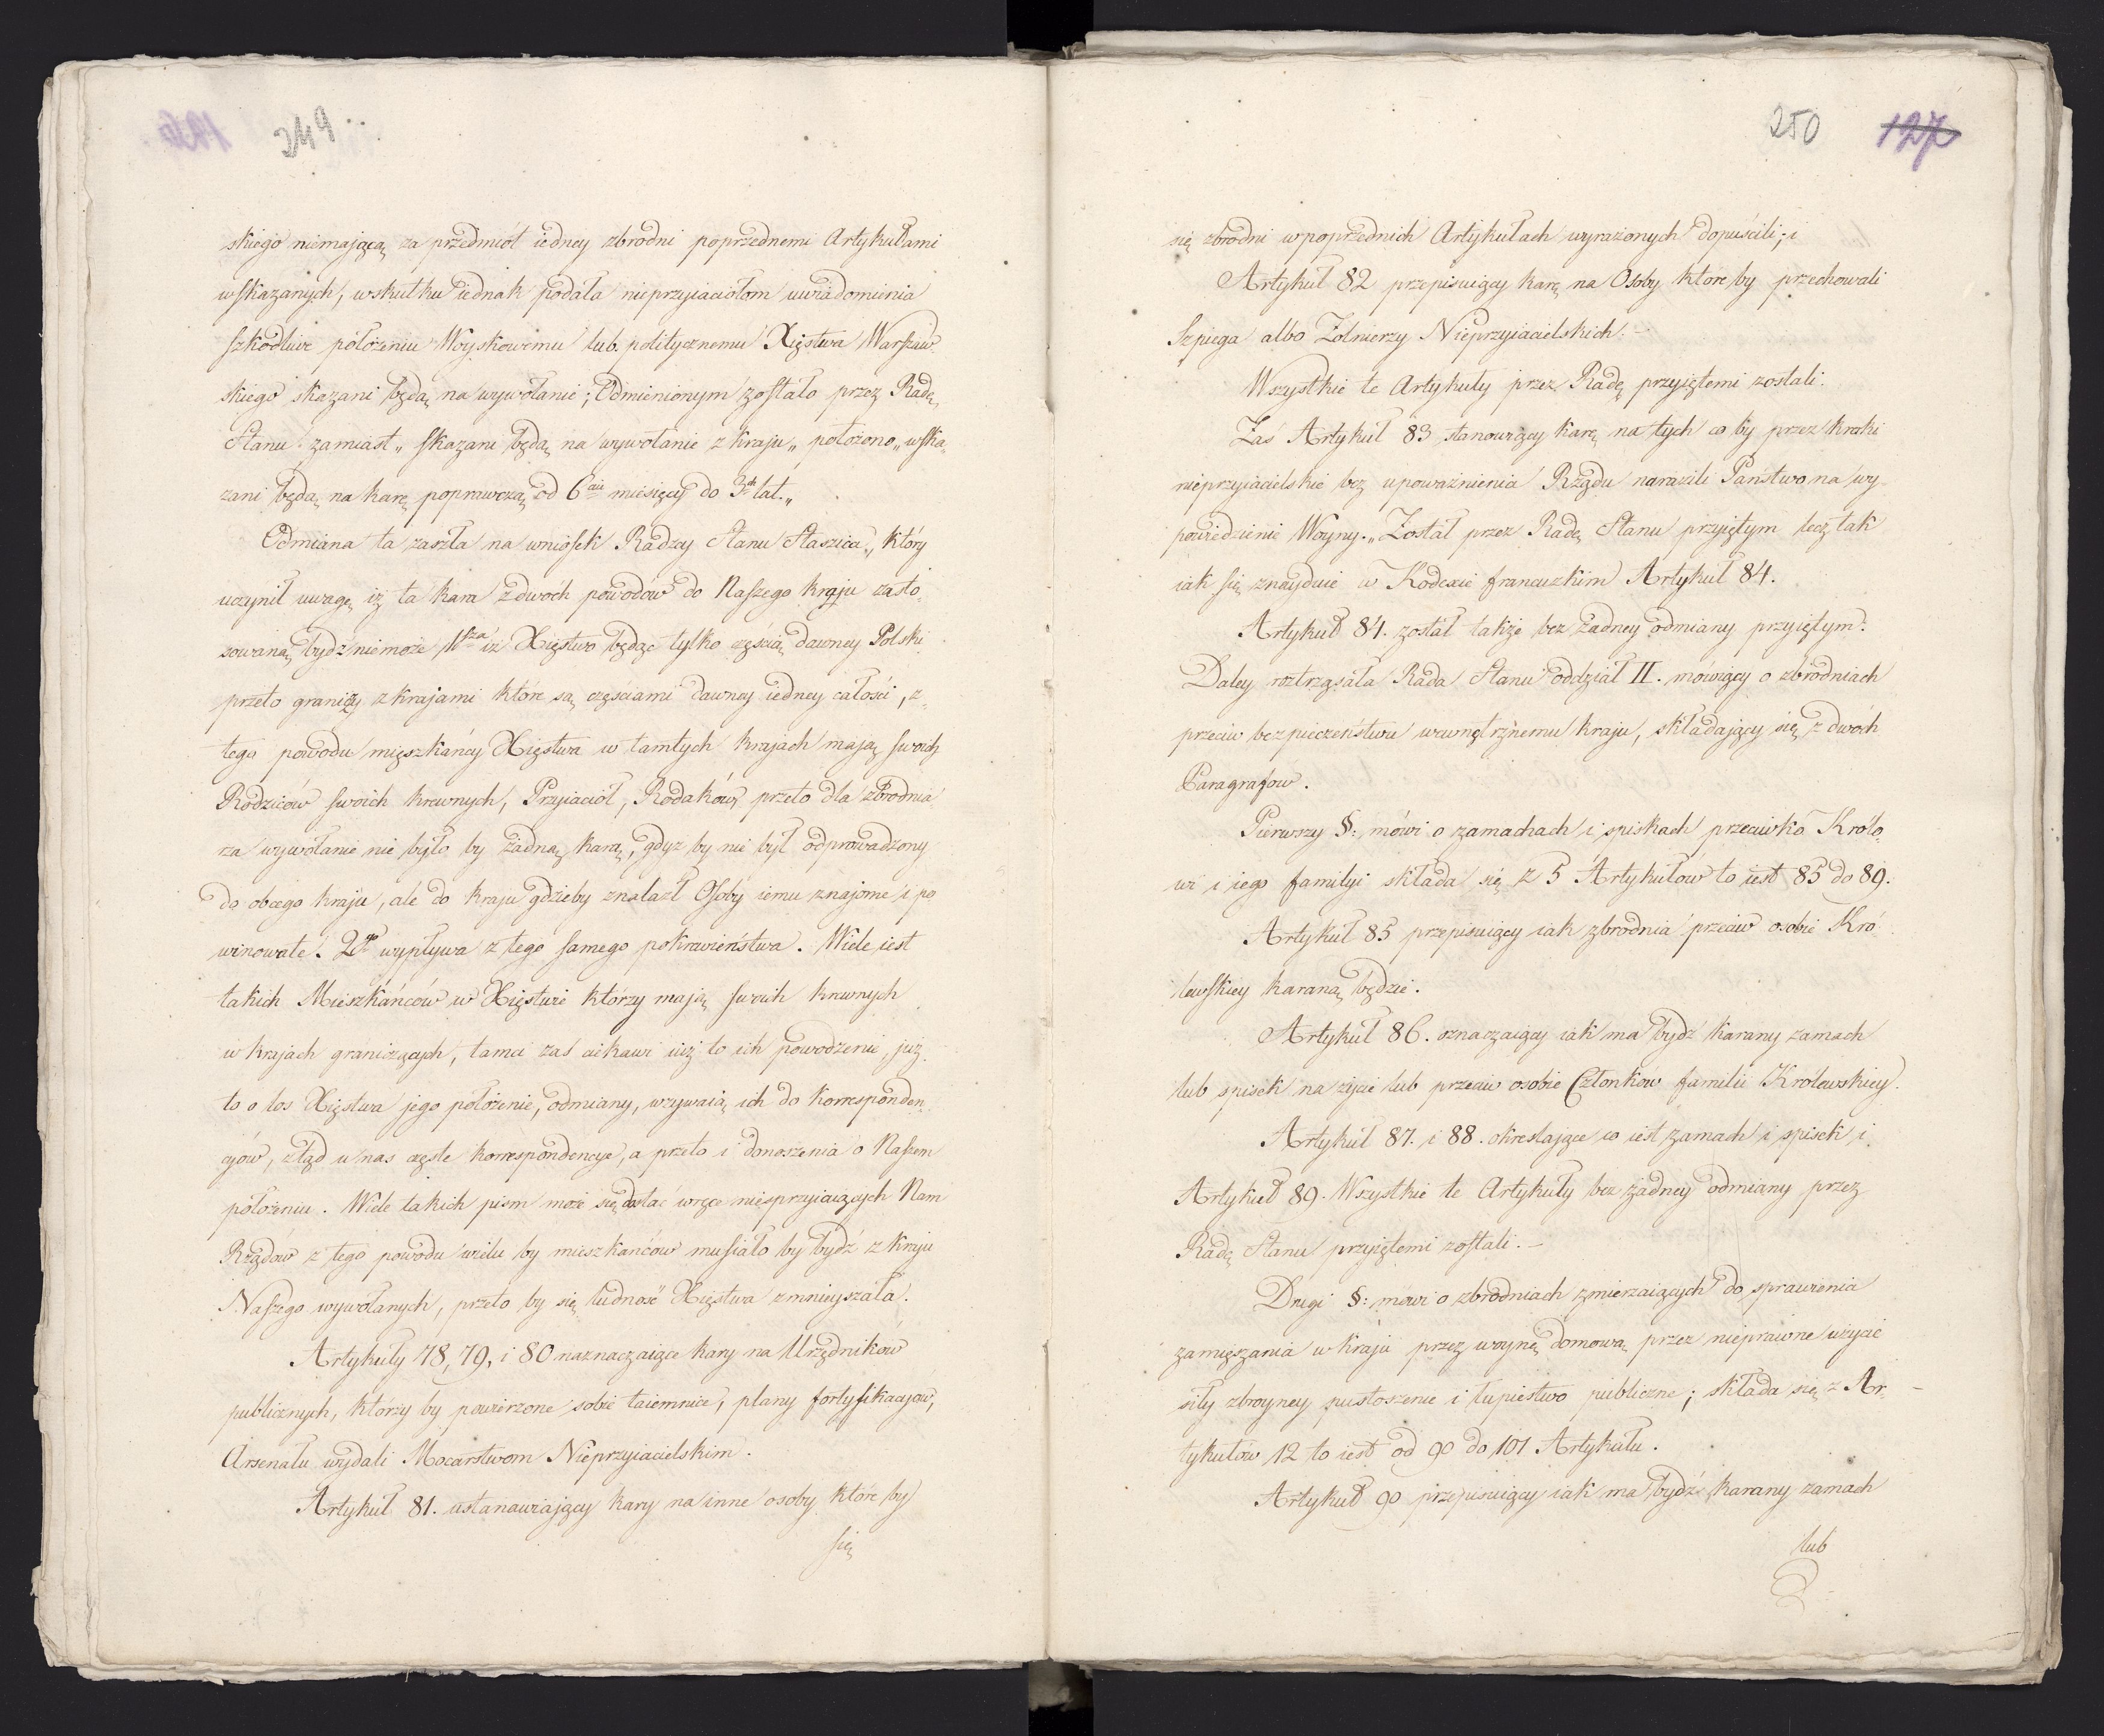 249
skiego niemającą za przedmiot iedney zbrodni poprzednemi Artykułami
wskazanych, wskutku iednak podała nieprzyiaciołom uwiadomienia
szkodliwe położeniu Woyskowemu lub politycznemu Xięstwa Warszaw
skiego skazani będą na wywołanie; Odmienionym zostało przez Radę
Stanu zamiast „skazani będą na wywołanie z kraju„ położono „wska„
zani będą na karę poprawczą od 6ciu miesięcy do 3ch lat.„
Odmiana ta zaszła na wniosek Radzcy Stanu Staszica, który
uczynił uwagę iż ta kara z dwóch powodów do Naszego kraju zasto„
sowaną bydź niemoże 1sza iż Xięstwo będąc tylko częścią dawney Polski
przeto graniczy z krajami które są częściami dawney iedney całości, z„
tego powodu mięszkańcy Xięstwa w tamtych krajach mają swoich
Rodziców swoich krewnych, Przyiaciół, Rodaków, przeto dla zbrodnia
rza wywołanie nie było by żadną karą, gdyż by nie był odprowadzony
do obcego kraju, ale do kraju gdzieby znalazł Osoby iemu znajome i po
winowate. 2re wypływa z tego samego pokrewieństwa. Wiele iest
takich Mieszkańców w Xięstwie którzy mają swoich krewnych
w krajach graniczących, tamci zaś ciekawi iuż to ich powodzenie, już
to o los Xięstwa jego położenie, odmiany, wzywaią ich do Korresponden„
cyów, ztąd u nas częste korrespondencye, a przeto i donoszenia o Naszem
położeniu. Wiele takich pism może się dostać w ręce niesprzyiaiących Nam
Rządów z tego powodu wielu by mieszkańców musiało by bydź z kraju
Naszego wywołanych, przeto by się ludność Xięstwa zmnieyszała.
Artykuły 78, 79, i 80 naznaczaiące kary na Urzędników
publicznych, którzy by powierzone sobie taiemnice, plany fortyfikacyow,
Arsenału wydali Mocarstwom Nieprzyiacielskim.
Artykuł 81. ustanawiający kary na inne osoby które by
się
250 127
się zbrodni w poprzednich Artykułach wyrażonych dopuścili; i
Artykuł 82 przepisuiący karę na Osoby które by przechowali
Szpiega albo Żołnierzy Nieprzyiacielskich. –
Wszystkie te Artykuły przez Radę przyiętemi zostali.
Zaś Artykuł 83 stanowiący karę na tych co by przez kroki
nieprzyiacielskie bez upoważnienia Rządu narazili Państwo na wy
powiedzenie Woyny. „Został przez Radę Stanu przyiętym lecz tak
iak się znayduie w Kodexie francuzkim Artykuł 84.
Artykuł 84. został także bez żadney odmiany przyiętym.
Daley roztrząsała Rada Stanu oddział II. mówiący o zbrodniach
przeciw bezpieczeństwu wewnętrznemu kraju, składający się z dwóch
Paragrafow.
Pierwszy §: mówi o zamachach i spiskach przeciwko Królo„
wi i iego familyi składa się z 5 Artykułów to iest 85 do 89.
Artykuł 85 przepisuiący iak zbrodnia przeciw osobie Kró
lewskiey karaną będzie.
Artykuł 86. oznaczaiący iak ma bydź karany zamach
lub spisek na życie lub przeciw osobie Członków familii Królewskiey.
Artykuł 87. i 88. określające co iest zamach i spisek i
Artykuł 89. Wszystkie te Artykuły bez żadney odmiany przez
Radę Stanu przyiętemi zostali. –
Drugi §: mówi o zbrodniach zmierzaiących do sprawienia
zamięszania w kraju przez woynę domową przez nieprawne użycie
siły zbroyney pustoszenie i łupiestwo publiczne; składa się z Ar„
tykułów 12 to iest od 90 do 101 Artykułu.
Artykuł 90 przepisuiący iak ma bydź karany zamach
lub